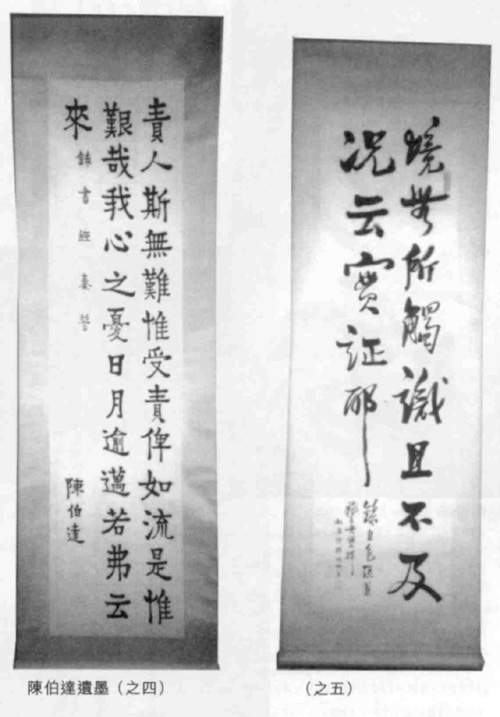 責人斯無難惟受責俾如流是惟
艱哉我心之憂日月逾邁若弗云
來
錄書經秦誓
陳伯達
陳伯達遺墨（之四）
境無所觸識且不及
況云實証耶
（之五）